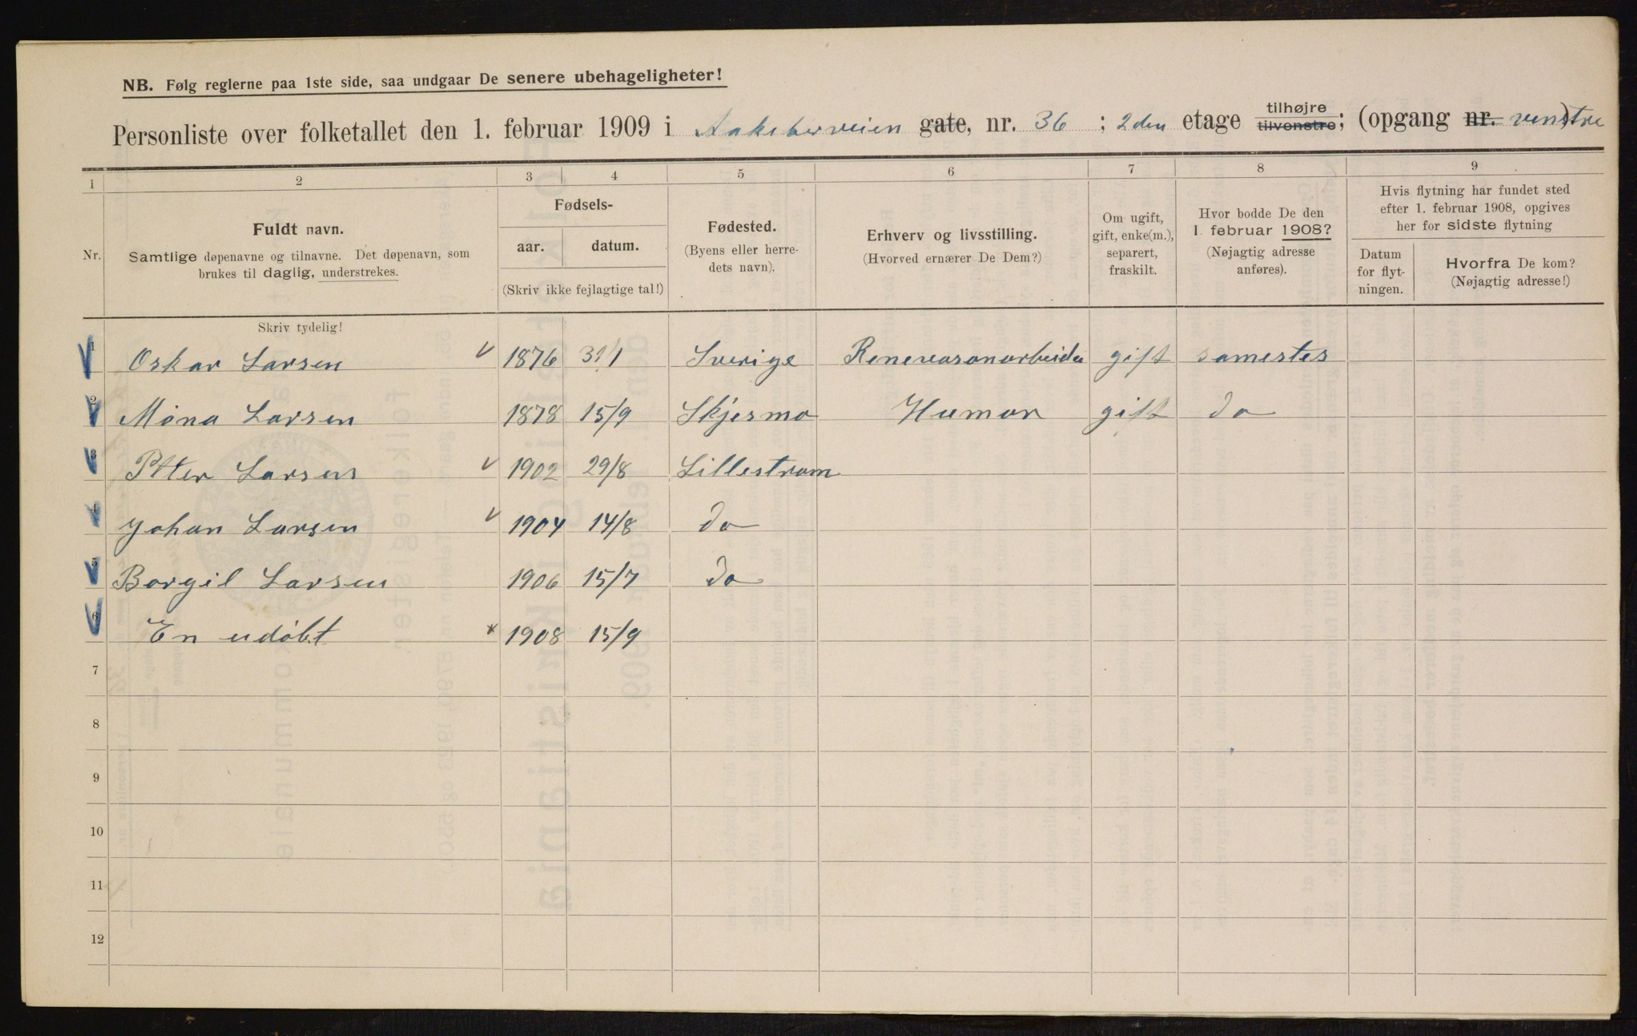 NB. Følg reglerne paa 1ste side, saa undgaar De senere ubehageligheter!
Personliste over folketallet den 1. februar 1909 i Aakeberveien gate, nr. 36 ; 2den etage tilhøjre tilvenstre; (opgang nr. venstre)
1 2 3 4 5 6 7 8 9
Nr.
Fuldt navn.
Samtlige døpenavne og tilnavne. Det døpenavn, som
brukes til daglig, understrekes.
Fødsels-
aar. datum.
(Skriv ikke fejlagtige tal!)
Fødested.
(Byens eller herre-
dets navn).
Erhverv og livsstilling.
(Hvorved ernærer De Dem?)
Om ugift,
gift, enke(m.),
separert,
fraskilt.
Hvor bodde De den
1. februar 1908?
(Nøjagtig adresse
anføres).
Hvis flytning har fundet sted
efter 1. februar 1908, opgives
her for sidste flytning
Datum
for flyt-
ningen.
Hvorfra De kom?
(Nøjagtig adresse!)
Skriv tydelig!
1 Oskar Larsen 1876 Sverige gift samestes
2 Mina Larsen 1878 15/9 Skjesmo Human gift do
3 Petter Larsen 1902 29/8 Lillestrøm
4 Johan Larsen 1904 14/8 do
5 Borgil Larsen 1906 15/7 do
6 En udøbt 1908 15/9
7
8
9
10
11
12